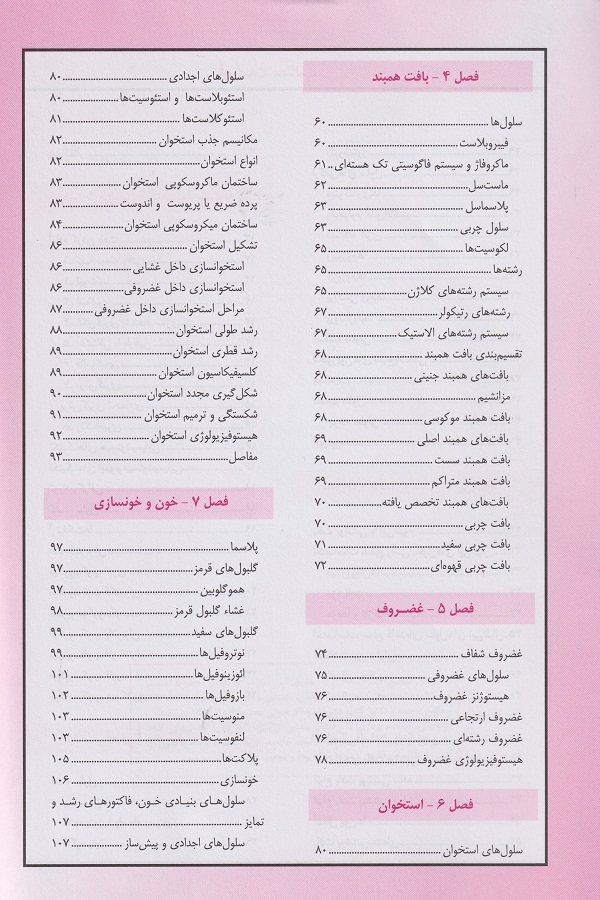 فصل ۴ - بافت همبند
سلول‌ها ........ ۶۰
فیبروبلاست ........ ۶۰
ماکروفاژ و سیستم فاگوسیتی تک هسته‌ای .. ۶۱
ماست‌سل ........ ۶۲
پلاسماسل ........ ۶۳
سلول چربی ........ ۶۳
لکوسیت‌ها ........ ۶۵
رشته‌ها ........ ۶۵
سیستم رشته‌های کلاژن ........ ۶۵
رشته‌های رتیکولر ........ ۶۷
سیستم رشته‌های الاستیک ........ ۶۷
تقسیم‌بندی بافت همبند ........ ۶۸
بافت‌های همبند جنینی ........ ۶۸
مزانشیم ........ ۶۸
بافت همبند موکوسی ........ ۶۸
بافت‌های همبند اصلی ........ ۶۹
بافت همبند سست ........ ۶۹
بافت همبند متراکم ........ ۶۹
بافت‌های همبند تخصص یافته ........ ۷۰
بافت چربی ........ ۷۰
بافت چربی سفید ........ ۷۱
بافت چربی قهوه‌ای ........ ۷۲
فصل ۵ - غضـروف
غضروف شفاف ........ ۷۴
سلول‌های غضروفی ........ ۷۵
هیستوژنز غضروف ........ ۷۶
غضروف ارتجاعی ........ ۷۶
غضروف رشته‌ای ........ ۷۶
هیستوفیزیولوژی غضروف ........ ۷۸
فصل ۶ - استخوان
سلول‌های استخوان ........ ۸۰
سلول‌های اجدادی ........ ۸۰
استئوبلاست‌ها و استئوسیت‌ها ........ ۸۰
استئوکلاست‌ها ........ ۸۱
مکانیسم جذب استخوان ........ ۸۲
انواع استخوان ........ ۸۲
ساختمان ماکروسکوپی استخوان ........ ۸۳
پرده ضریع یا پریوست و اندوست ........ ۸۳
ساختمان میکروسکوپی استخوان ........ ۸۴
تشکیل استخوان ........ ۸۶
استخوانسازی داخل غشایی ........ ۸۶
استخوانسازی داخل غضروفی ........ ۸۶
مراحل استخوانسازی داخل غضروفی ........ ۸۷
رشد طولی استخوان ........ ۸۸
رشد قطری استخوان ........ ۸۹
کلسیفیکاسیون استخوان ........ ۸۹
شکل‌گیری مجدد استخوان ........ ۹۰
شکستگی و ترمیم استخوان ........ ۹۱
هیستوفیزیولوژی استخوان ........ ۹۲
مفاصل ........ ۹۳
فصل ۷ - خون و خونسازی
پلاسما ........ ۹۷
گلبول‌های قرمز ........ ۹۷
هموگلوبین ........ ۹۷
غشاء گلبول قرمز ........ ۹۸
گلبول‌های سفید ........ ۹۹
نوتروفیل‌ها ........ ۹۹
ائوزینوفیل‌ها ........ ۱۰۱
بازوفیل‌ها ........ ۱۰۲
منوسیت‌ها ........ ۱۰۳
لنفوسیت‌ها ........ ۱۰۳
پلاکت‌ها ........ ۱۰۵
خونسازی ........ ۱۰۶
سلول‌هـای بنیـادی خـون، فاکتورهـای رشـد و
تمایز ........ ۱۰۷
سلول‌های اجدادی و پیش‌ساز ........ ۱۰۷